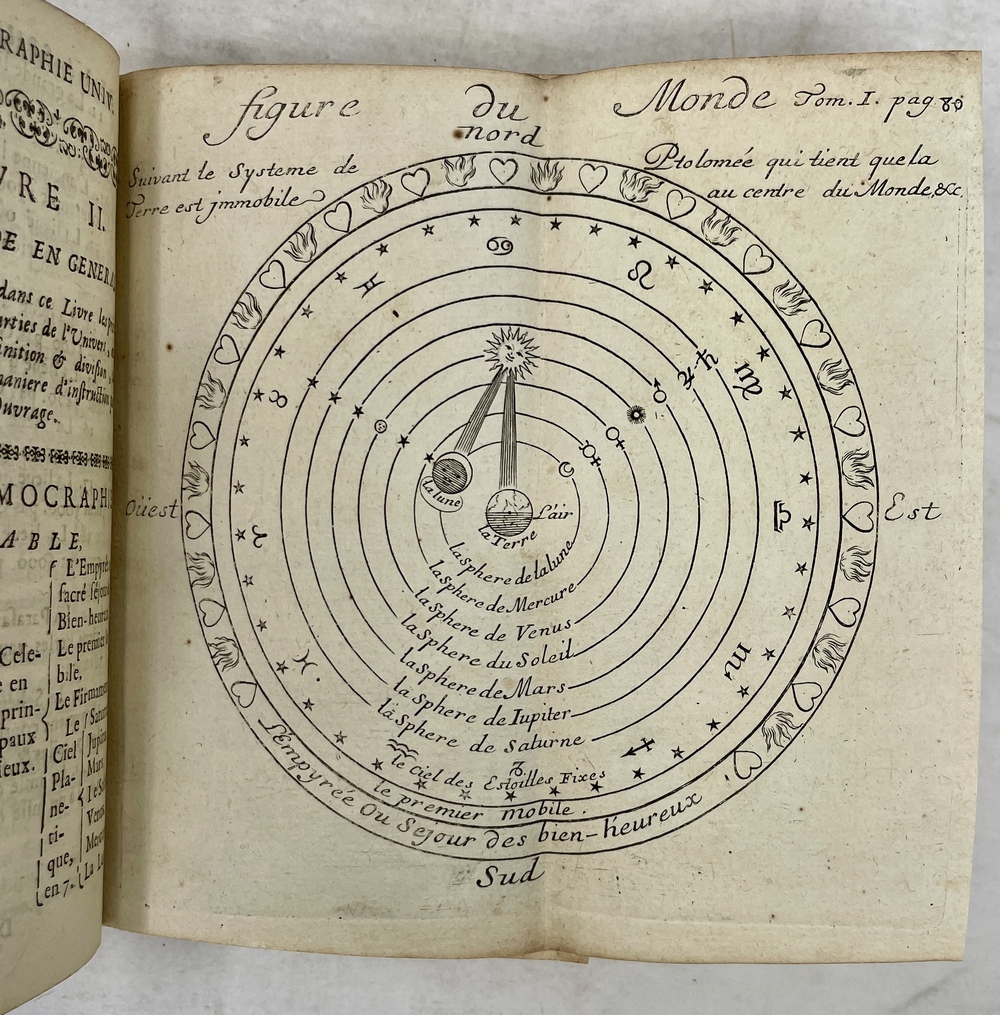 RAPHIE UNIV.
VRE II.
DE EN GENERA
dans ce Livre les
arties de l'Univers,
finition & division,
maniere d'instruction
Ouvrage.
MOGRAPH
ABLE,
L'Empyrée
sacré séjour
Bien-heureux
Le premier
bile,
Le Firmament
Cele-
e en
prin-
paux
ieux.
Le
Ciel
Pla-
ne-
ti-
que,
en 7.
Satur
Jupit
Mars
le S
Venus
Mercu
La L
figure du Monde Tom. I. pag. 80
nord
Suivant le Systeme de Ptolomée qui tient que la
Terre est jmmobile au centre du Monde, &c.
Oüest
Est
la lune
L'air
la Terre
la sphere de la lune
la sphere de Mercure
la sphere de Venus
la Sphere du Soleil
la Sphere de Mars
la Sphere de Iupiter
la Sphere de Saturne
le ciel des Estoilles Fixes
le premier mobile.
l'Empyrée Ou Sejour des bien-heureux
Sud